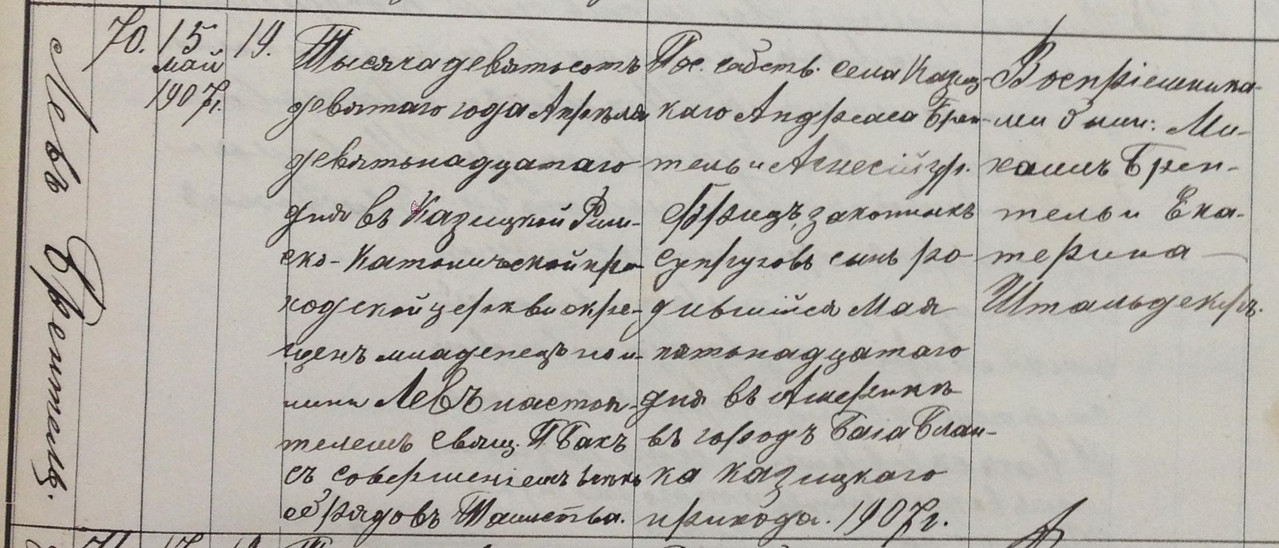 Левъ Брейтель.
70.
15 май 1907г.
19.
Тысяча девятьсотъ
девятаго года Апрѣля
девятьнадцатаго
дня въ Казицкой Рим-
ско-Католической при-
ходской церкви окре-
щенъ младенецъ по и-
мени Левъ настоя-
телемъ свящ. П Бахъ
съ совершеніемъ всѣхъ
обрядовъ Таинства.
Пос. собств. села Казиц-
каго Андреаса Брей-
тель и Агнесіи ур.
законныхъ
супруговъ сынъ ро-
дившійся Мая
пятьнадцатаго
дня въ Америкѣ
въ городѣ Баіа Блан-
ка Казицкаго
прихода. 1907г.
Воспріемника-
ми были: Ми-
хаилъ Брей-
тель и Ека-
терина
Штальдекеръ.